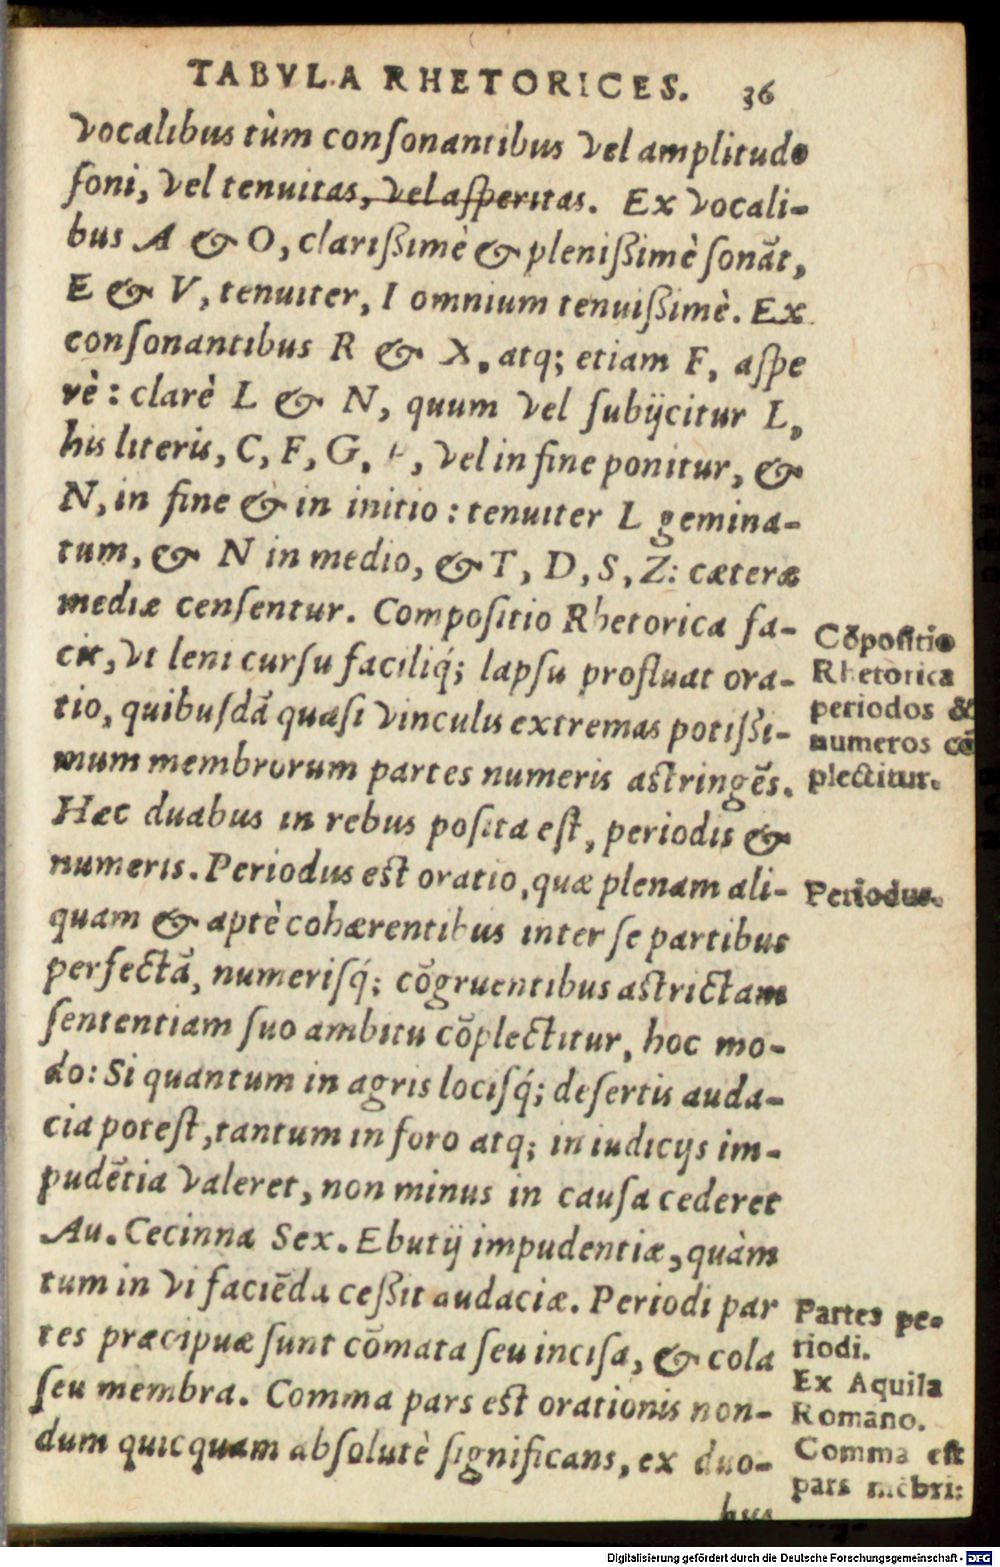 TABVLA RHETORICES. 36
vocalibus tùm conſonantibus vel amplitudo
ſoni, vel tenuitas, vel aſperitas. Ex vocali-
bus A & O, clariſsimè & pleniſsimè ſonāt,
E & V, tenuiter, I omnium tenuiſsimè. Ex
conſonantibus R & X, atq; etiam F, aſpe
rè: clarè L & N, quum vel ſubijcitur L,
his literis, C, F, G, , vel in fine ponitur, &
N, in fine & in initio: tenuiter L gemina-
tum, & N in medio, & T, D, S, Z: cæteræ
mediæ cenſentur. Compoſitio Rhetorica fa-
cit, vt leni curſu faciliq́; lapſu profluat ora-
tio, quibuſdā quaſi vinculis extremas potiſsi-
mum membrorum partes numeris aſtringēs.
Hæc duabus in rebus poſita eſt, periodis &
numeris. Periodus eſt oratio, quæ plenam ali-
quam & aptè cohærentibus inter ſe partibus
perfectā, numeriſq́; cōgruentibus aſtrictam
ſententiam ſuo ambitu cōplectitur, hoc mo-
do: Si quantum in agris lociſq́; deſertis auda-
cia poteſt, tantum in foro atq; in iudicijs im-
pudētia valeret, non minus in cauſa cederet
Au. Cecinna Sex. Ebutij impudentiæ, quàm
tum in vi faciēda ceſsit audaciæ. Periodi par
tes præcipuæ ſunt cōmata ſeu inciſa, & cola
ſeu membra. Comma pars eſt orationis non-
dum quicquam abſolutè ſignificans, ex duo-
bus
Cōpoſitio
Rhetorica
periodos &
numeros cō
plectitur.
Periodus.
Partes pe-
riodi.
Ex Aquila
Romano.
Comma eſt
pars mēbri:
Digitalisierung gefördert durch die Deutsche Forschungsgemeinschaft - DFG